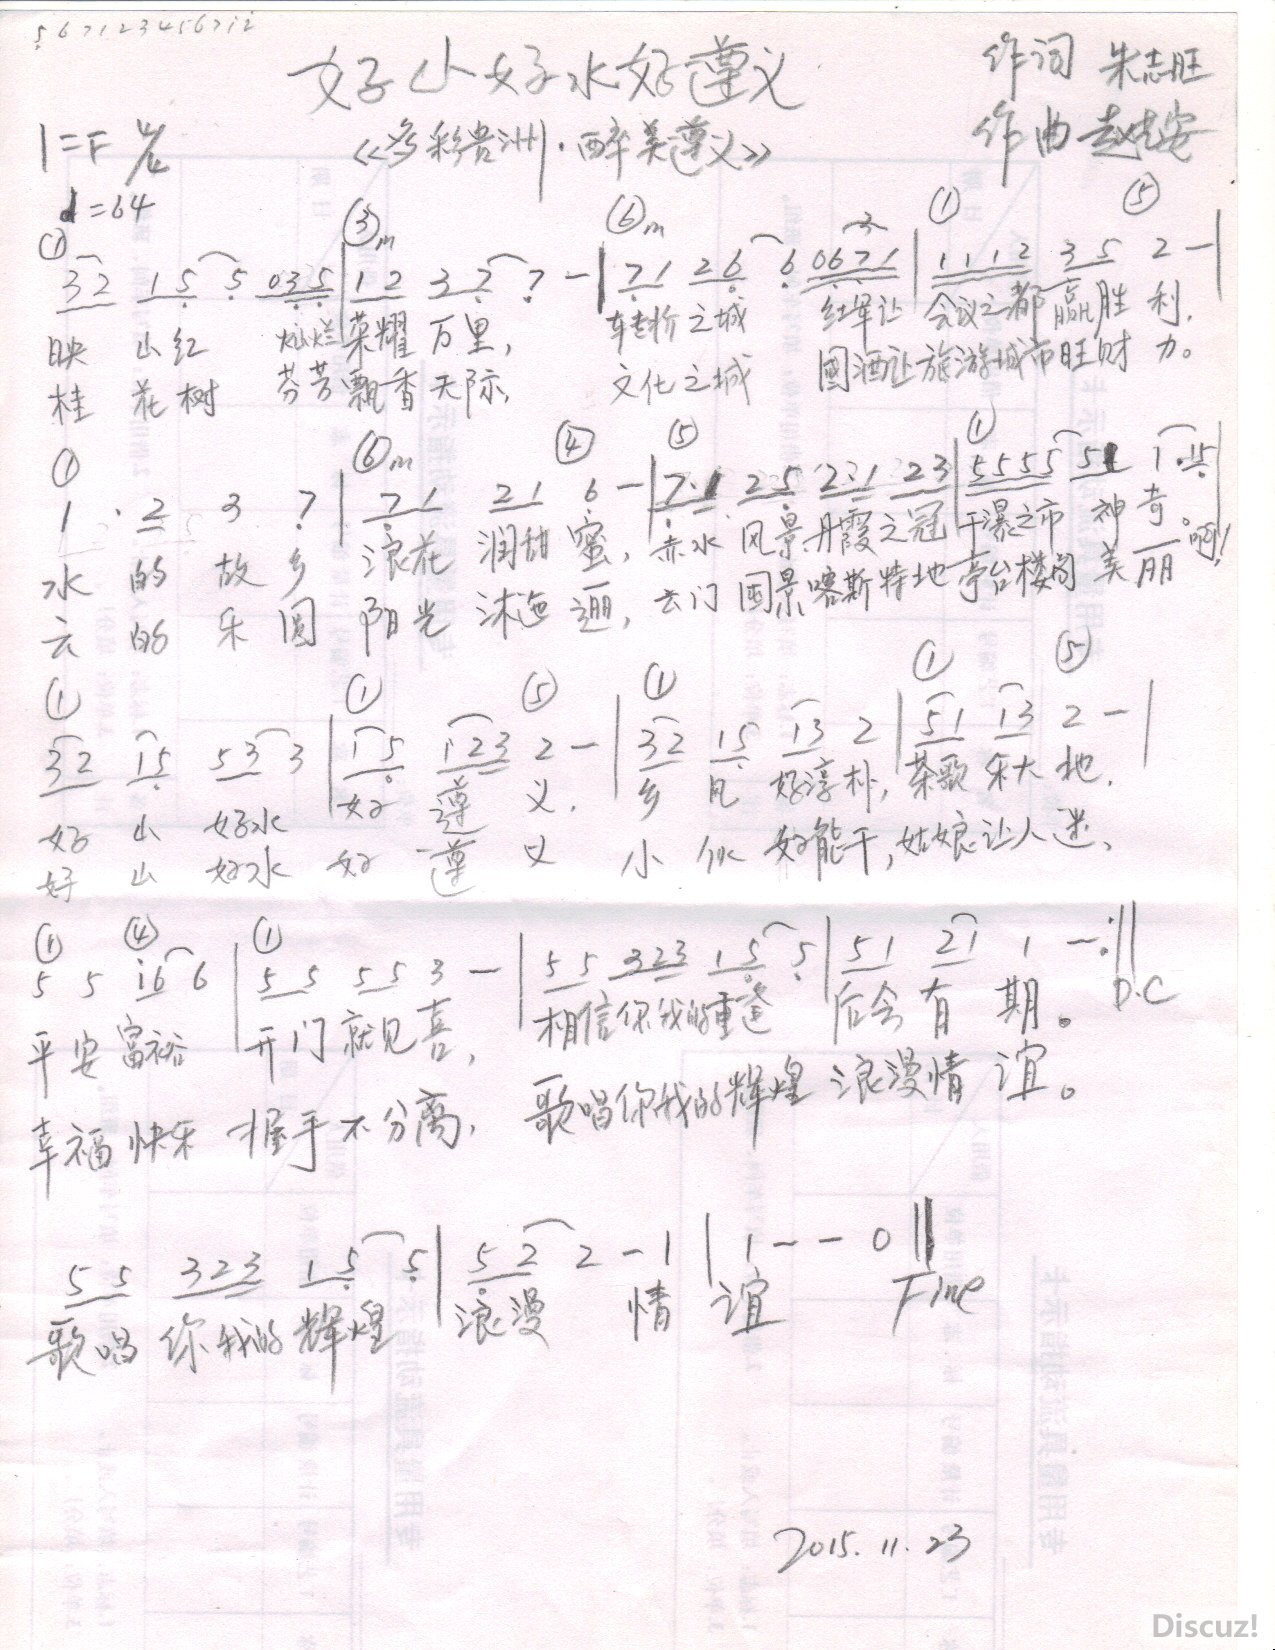 5 6 7 1 2 3 4 5 6 7 1 2
好山好水好遵义
作词 朱志旺
1=F 4/4
《多彩贵州·醉美遵义》
作曲
♩=64
① ③m ⑥m ① ⑤
32 15 5 035 | 12 3 7 7 - | 71 26 6 0671 | 1112 35 2 - |
映 山 红 灿烂 荣耀 万里, 转折之城 红军让 会议之都 赢胜利,
桂 花 树 芬芳 飘香 天际, 文化之城 國酒让旅游城市旺财 力。
① ⑥m ④ ⑤ ①
1 · 2 3 7 | 71 21 6 - | 7·1 25 2·1 23 | 5555 51 1·15 |
水 的 故 乡 浪花 润甜 蜜, 赤水 风景 丹霞之冠 千瀑之市 神 奇。
云 的 乐 园 阳光 沐 迤逦, 云门 囤景 喀斯特地 亭台楼阁 美 丽 啊!
① ① ⑤ ① ① ⑤
32 15 53 3 | 15 123 2 - | 32 15 13 2 | 51 13 2 - |
好 山 好水 好 遵 义, 乡 风 好淳朴, 茶歌 乐大 地,
好 山 好水 好 遵 义 小 伙 好能干, 姑娘 让人 迷,
① ④ ①
5 5 i6 6 | 55 55 3 - | 55 323 15 5 | 51 21 1 - :‖
D.C
平 安 富裕 开门 就见 喜, 相信 你我的 重逢 后会 有 期。
幸 福 快乐 握手 不分 离, 歌唱 你我的 辉煌 浪漫 情 谊。
55 323 15 5 | 52 2 - 1 | 1 - - 0 ‖
歌唱 你我的 辉煌 浪漫 情 谊 Fine
2015.11.23
Discuz!